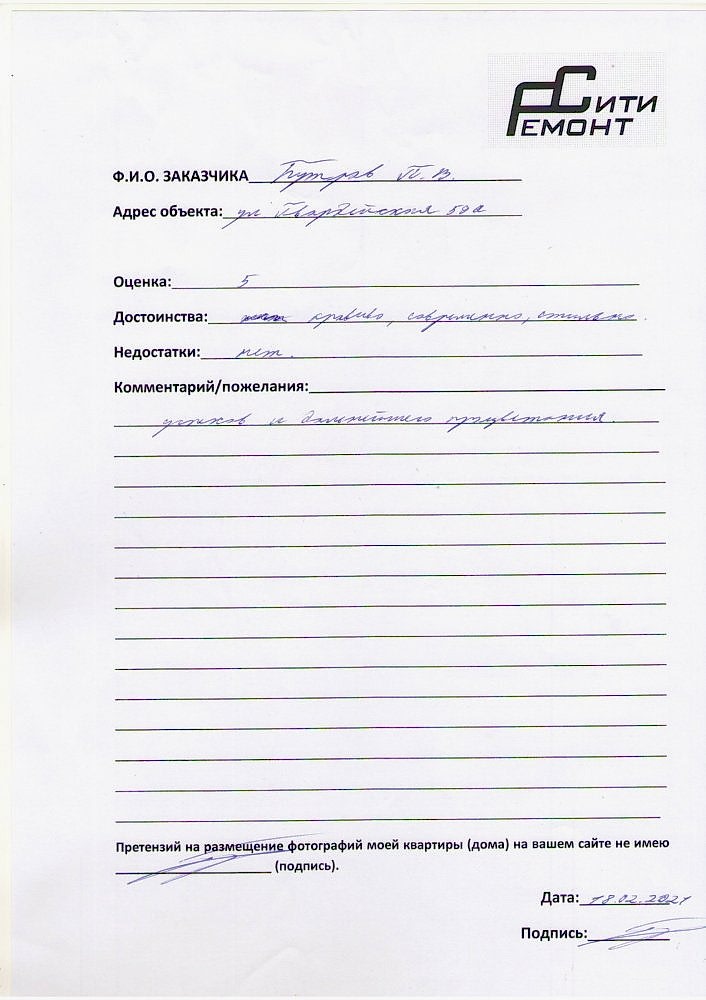 СИТИ
РЕМОНТ
Ф.И.О. ЗАКАЗЧИКА П.В.
Адрес объекта: ул Гвардейская 59а
Оценка: 5
Достоинства: красиво, современно, стильно.
Недостатки: нет.
Комментарий/пожелания:
успехов и дальнейшего процветания.
Претензий на размещение фотографий моей квартиры (дома) на вашем сайте не имею
(подпись).
Дата: 18.02.2021
Подпись: